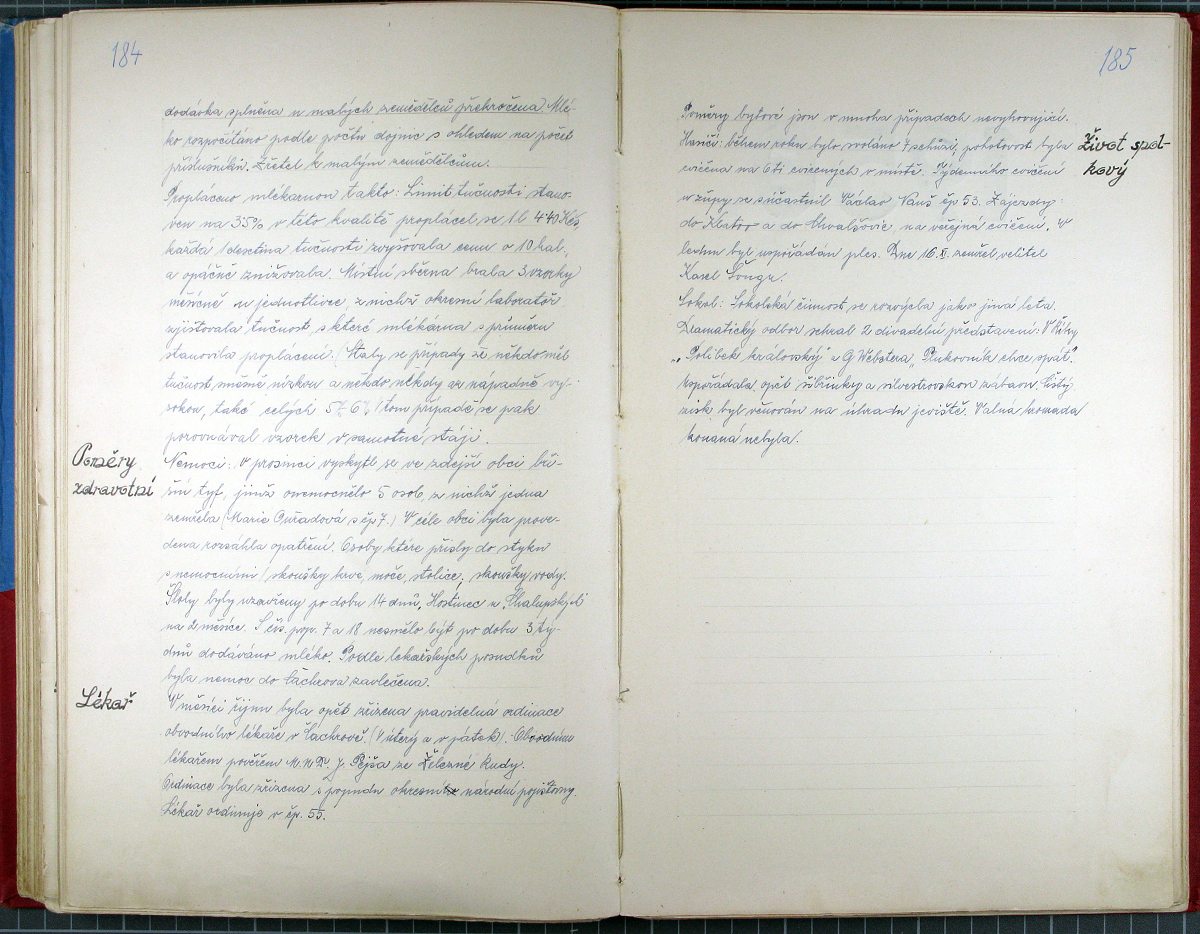 184
dodávka splněna u malých zemědělců překročena. Mlé-
ko rozpočítáno podle počtu dojnic s ohledem na počet
příslušníků. Zřetel k malým zemědělcům.
Propláceno mlékárnou takto: Limit tučnosti stano-
ven na 3.5% v této kvalitě proplácel se 1 l. 4.40 Kčs,
každá 1 desetina tučnosti zvyšovala cenu o 10 hal.,
a opáčně znižovala. Místní sběrna brala 3 vzorky
měsíčně u jednotlivce z nichž okresní laboratoř
zjišťovala tučnost s které mlékárna s průměru
stanovila proplacení. (Staly se případy že někdo měl
tučnost směšně nízkou a někdo někdy až nápadně vy-
sokou, také celých 5% 6% V tom případě se pak
porovnával vzorek v samotné stáji.
Poměry
zdravotní
Nemoci: V prosinci vyskytl se ve zdejší obci bři-
šní tyf, jímž onemocnělo 5 osob, z nichž jedna
zemřela (Marie Ouřadová s čp 7.) V céle obci byla prove-
dena rozsáhla opatření. Osoby které přišly do styku
s nemocnými (skoušky krve, moče, stolice; skoušky vody.
Školy byly uzavřeny po dobu 14 dnů, Hostinec u "Skalupských"
na 2 měsíce. S čís. pop. 7 a 18 nesmělo být po dobu 3 tý-
dnů dodáváno mléko. Podle lékařských posudků
byla nemoc do Čachrova zavlečena.
Lékař
V měsíci říjnu byla opět zřízena pravidelná ordinace
obvodního lékaře v Čachrově. (V úterý a v pátek). Obvodním
lékařem pověřen M.U.Dr. J. Pejša ze Železné Rudy.
Ordinace byla zřízena s popudu okresní národní pojišťovny.
Lékař ordinuje v čp. 55.
185
Poměry bytové jsou v mnoha případech nevyhovující.
Život spol-
kový
Hasiči: během roku bylo svoláno 7 schůzí, pohotovost byla
cvičena na 6ti cvičeních v místě. Týdenního cvičení
u župy se súčastnil Václav Vaněš čp 53. Zájezdy:
do Klatov a do Chvalšovic na veřejná cvičení. V
lednu byl uspořádan ples. Dne 16. X. zemřel velitel
Karel Šonga.
Sokol: Sokolská činnost se rozvýjela jako jiná leta.
Dramatický odbor sehral 2 divadelní představení: V Říhy
„Polibek královský" a G Webstera „Plukovník chce spát".
Uspořádala opět šibřinky a silvestrovskou zábavu. Čistý
zisk byl věnován na úhradu jeviště. Valná hromada
konaná nebyla.